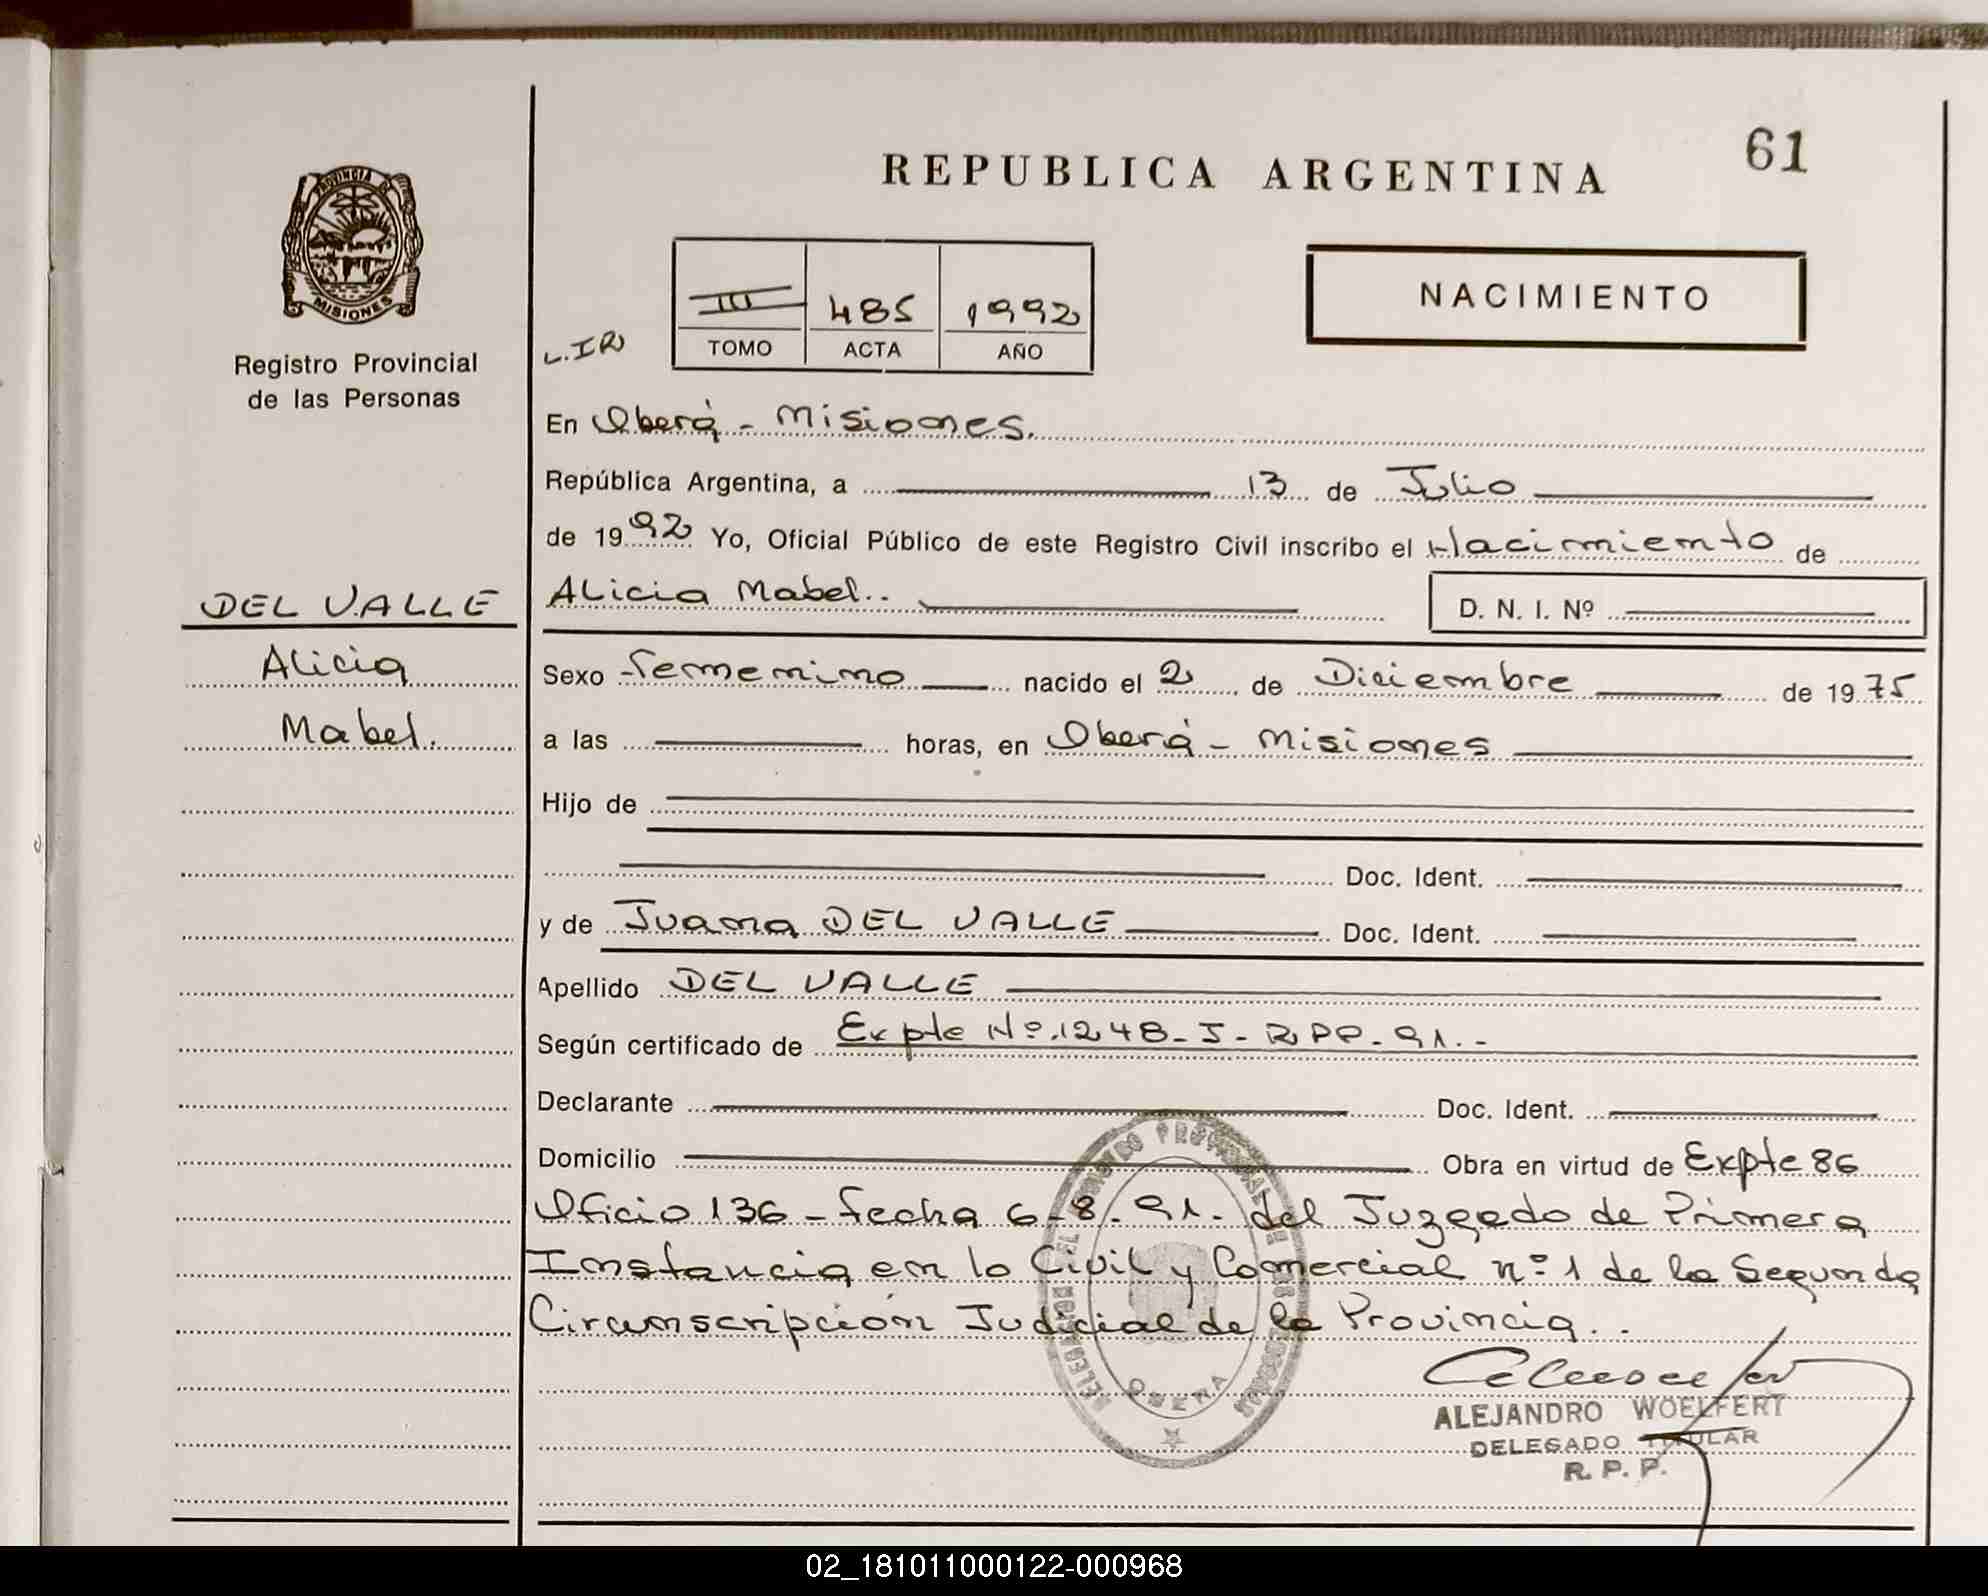 61
REPUBLICA ARGENTINA
PROVINCIA DE
MISIONES
Registro Provincial
de las Personas
NACIMIENTO
III 485 1992
TOMO ACTA AÑO
En Oberá - Misiones.
República Argentina, a 13 de Julio
de 1992 Yo, Oficial Público de este Registro Civil inscribo el Nacimiento de
Alicia Mabel..
D. N. I. Nº
DEL VALLE
Alicia
Mabel.
Sexo femenino nacido el 2 de Diciembre de 1975
a las horas, en Oberá - Misiones
Hijo de
Doc. Ident.
y de Juana DEL VALLE Doc. Ident.
Apellido DEL VALLE
Según certificado de Expte Nº.1248-J-RPP-91.-
Declarante Doc. Ident.
Domicilio Obra en virtud de Expte 86
Oficio 136 - fecha 6-8-91- del Juzgado de Primera
Instancia en lo Civil y Comercial nº 1 de la Segunda
Circunscripción Judicial de la Provincia..
OBERA
ALEJANDRO WOELFERT
DELEGADO TITULAR
R. P. P.
02_181011000122-000968